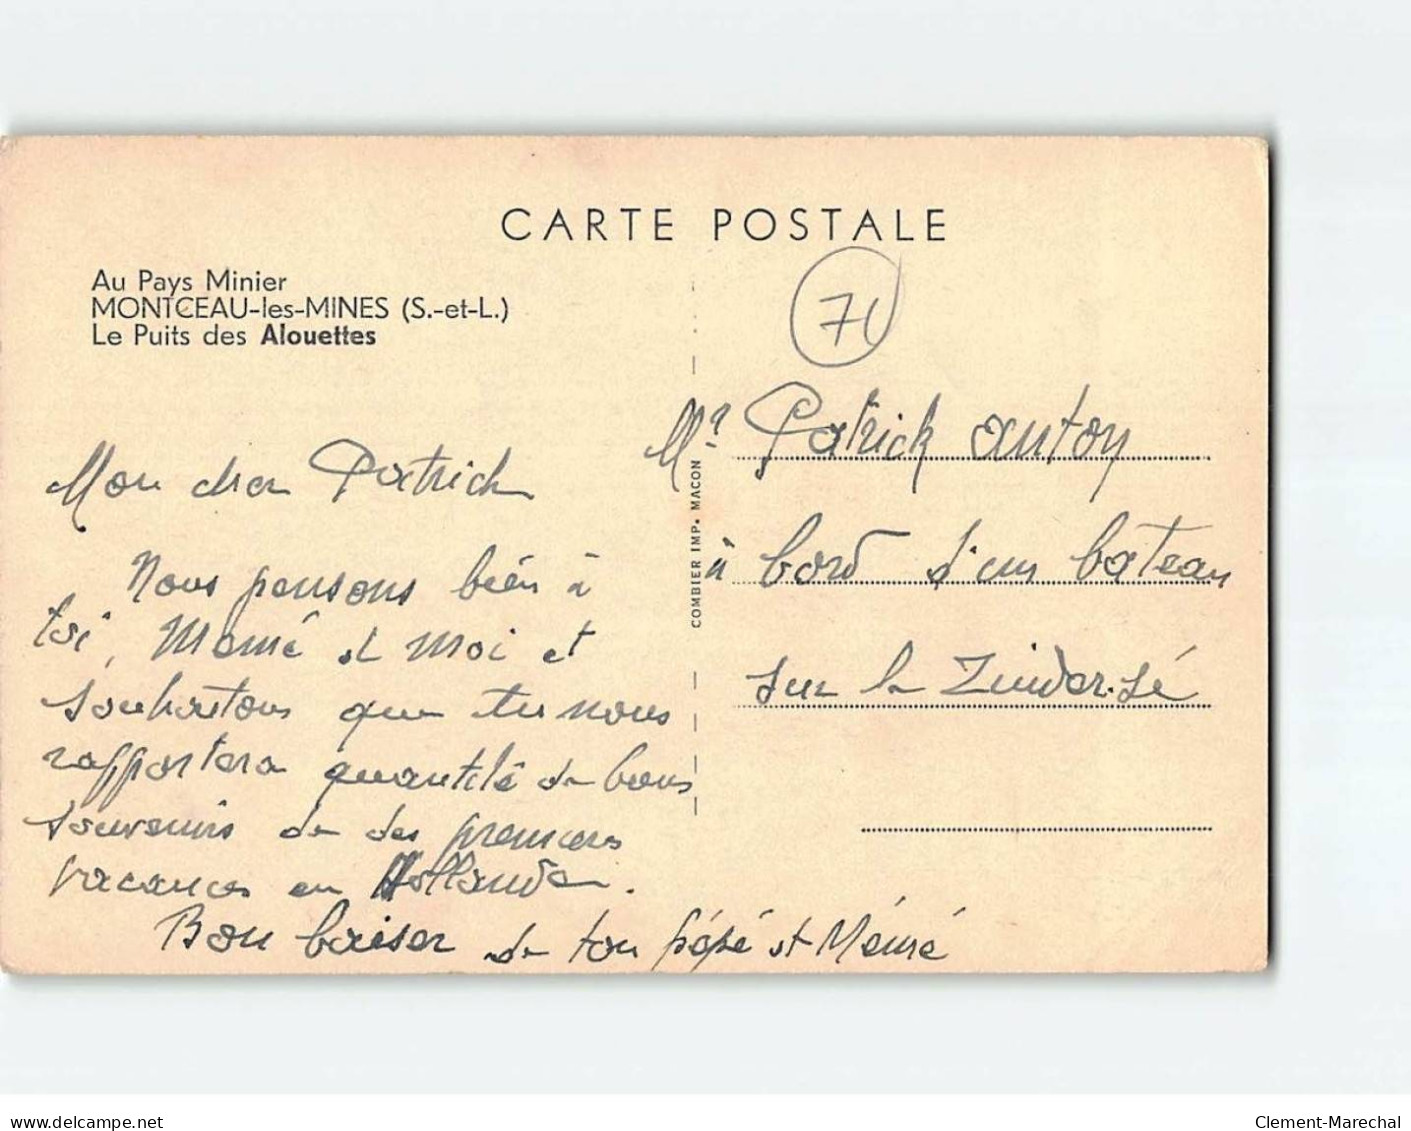 CARTE POSTALE
Au Pays Minier
MONTCEAU-les-MINES (S.-et-L.)
Le Puits des Alouettes
71
COMBIER IMP. MACON
Mr Patrick Antoy
à bord d'un bateau
sur le Zuiderzé
Mon cher Patrick
Nous pensons bien à
toi, Mémé et moi et
souhaitons que tu nous
rapportera quantité de bons
souvenirs de des premiers
vacances en Hollande.
Bon baiser de ton pépé et Mémé
delcampe.net
Clement-Marechal